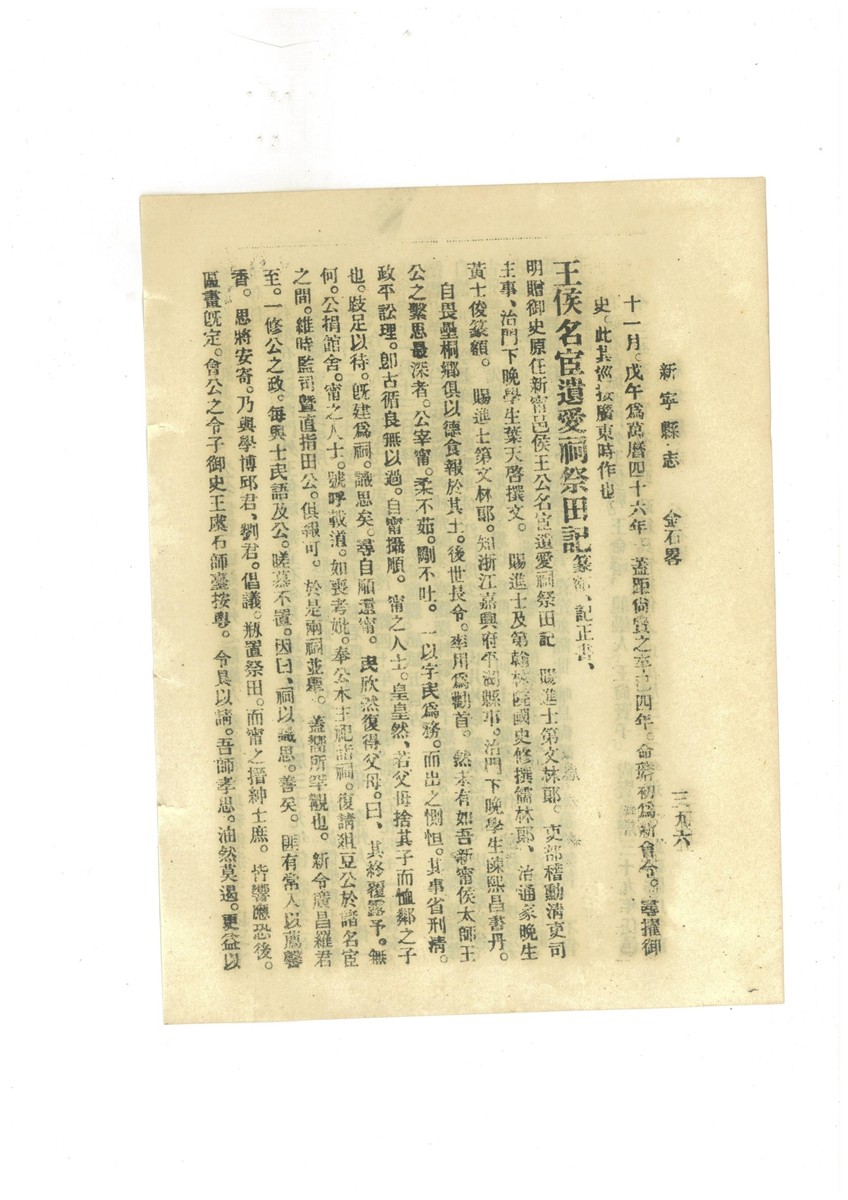 新寧縣志 金石畧 三九六
十一月。戊午爲萬曆四十六年。蓋距尙賓之卒已四年。命瞻初爲新會令。尋擢御
史。此其巡按廣東時作也
王侯名宦遺愛祠祭田記篆額、記正書、
明贈御史原任新甯邑侯王公名宦遺愛祠祭田記 賜進士第文林郎。吏部稽勳淸吏司
主事、治門下晚學生葉天啓撰文。 賜進士及第翰林院國史修撰儒林郎、治通家晚生
黃士俊篆額。 賜進士第文林郎。知浙江嘉興府平湖縣事。治門下晚學生陳熙昌書丹。
自畏壘桐鄉俱以德食報於其土。後世長令。率用爲勸首。然未有如吾新甯侯太師王
公之繫思最深者。公宰甯。柔不茹。剛不吐。一以字民爲務。而出之惻怛。其事省刑淸。
政平訟理。卽古循良無以過。自甯攝順。甯之人士。皇皇然、若父母捨其子而恤鄰之子
也。跂足以待。旣建爲祠。識思矣。尋自順還甯。民欣然復得父母。曰、其終覆露予。無
何。公捐館舍。甯之人士。號呼載道。如喪考妣。奉公木主祀諸祠。復請俎豆公於諸名宦
之間。維時監司曁直指田公。俱報可。於是兩祠並舉。蓋嚮所罕覯也。新令廣昌羅君
至。一修公之政。每與士民語及公。嗟慕不置。因曰、祠以識思。善矣。匪有常入以薦馨
香。思將安寄。乃與學博邱君、劉君。倡議。瓶置祭田。而甯之搢紳士庶。皆響應恐後。
區畫旣定。會公之令子御史王虞石師臺按粵。令具以請。吾師孝思。油然莫遏。更益以